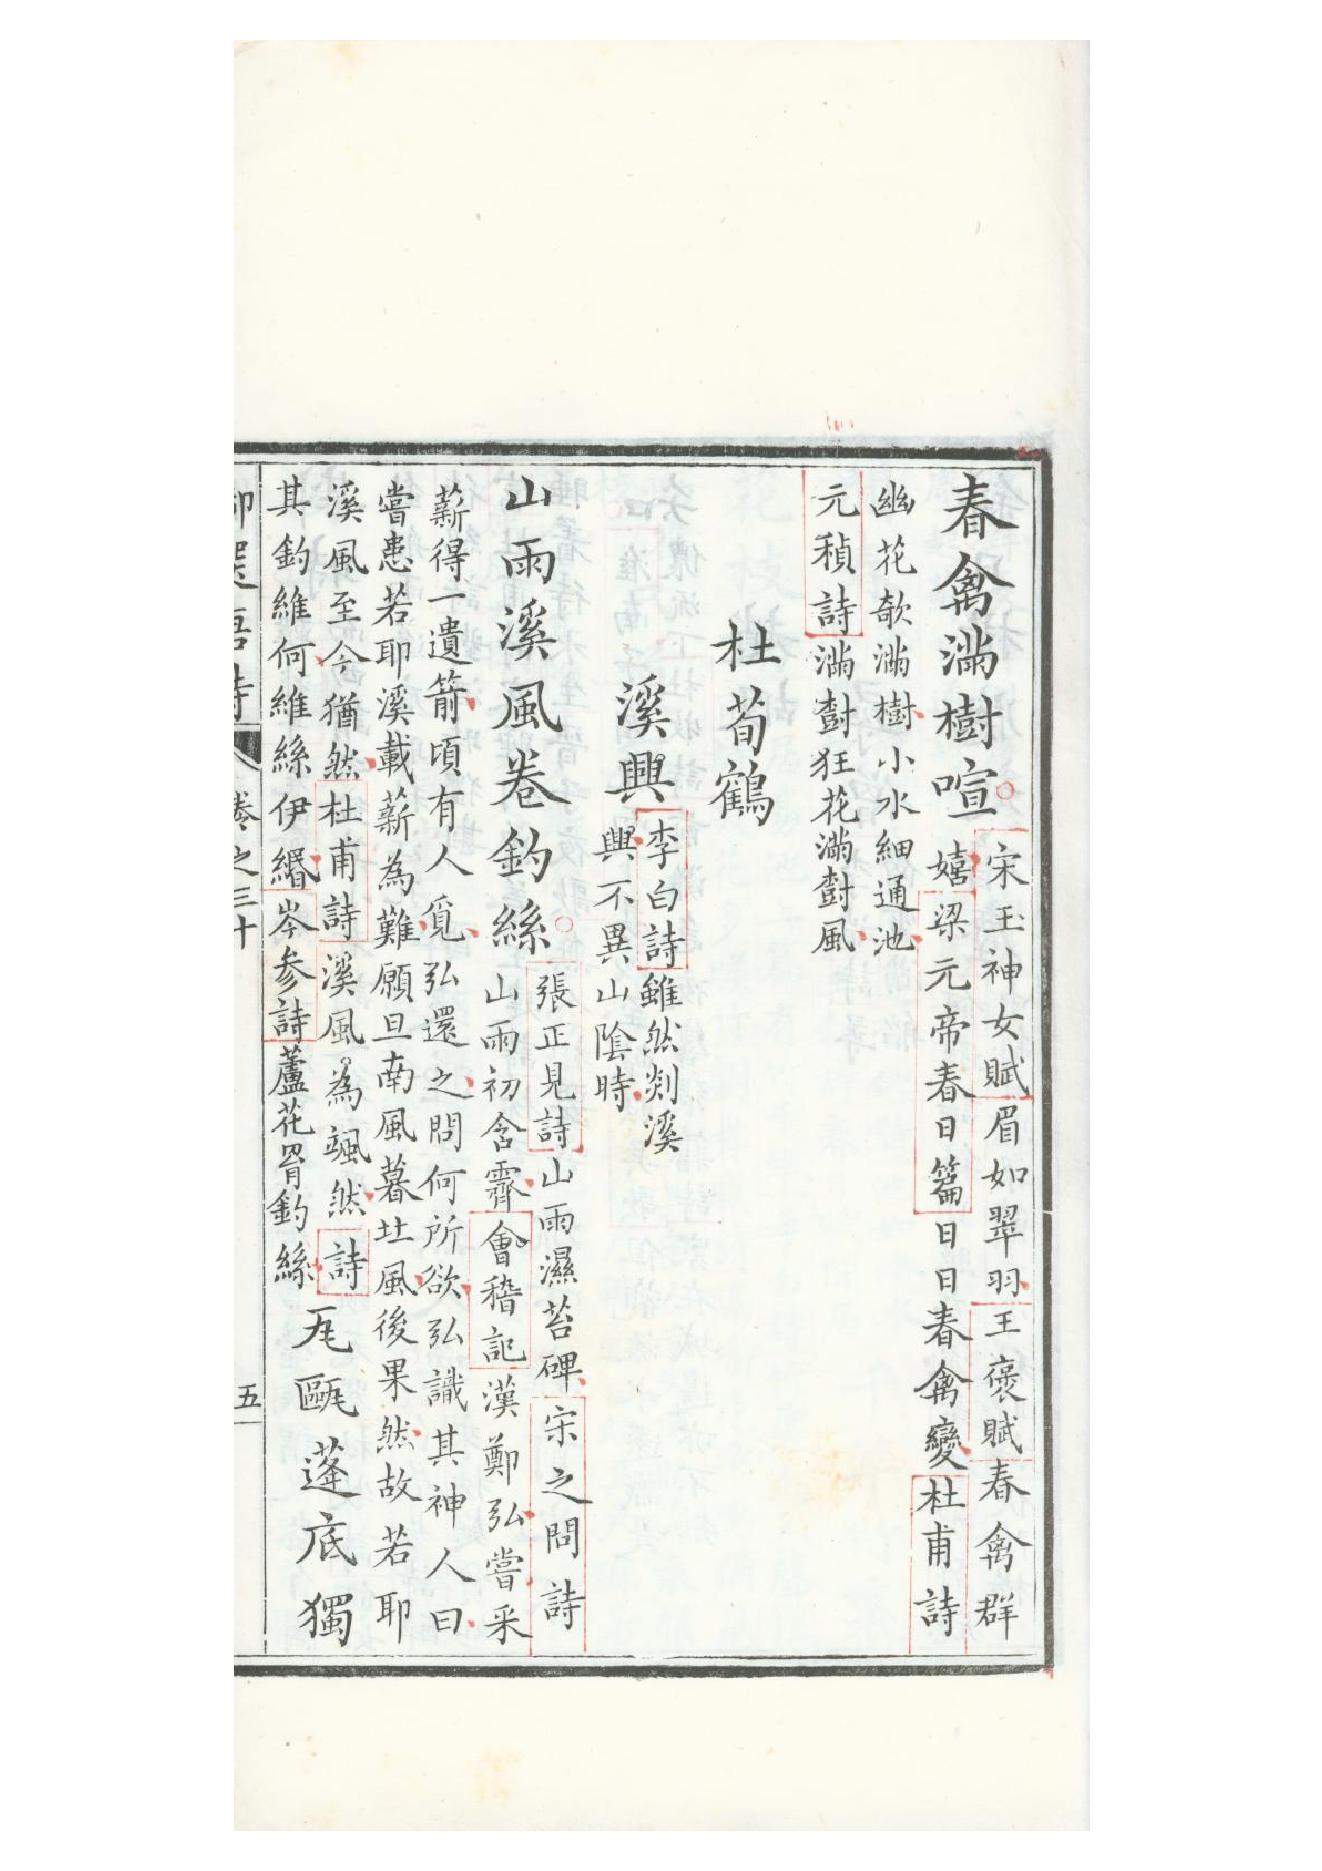 春禽滿樹喧
宋玉神女賦眉如翠羽王褒賦春禽群
嬉梁元帝春日篇日日春禽變杜甫詩
幽花欹滿樹小水細通池
元稹詩滿樹狂花滿樹風
杜荀鶴
溪興
李白詩雖然剡溪
興不異山陰時
山雨溪風卷釣絲
張正見詩山雨濕苔碑宋之問詩
山雨初含霽會稽記漢鄭弘嘗采
薪得一遺箭頃有人覓弘還之問何所欲弘識其神人曰
嘗患若耶溪載薪為難願旦南風暮北風後果然故若耶
溪風至今猶然杜甫詩溪風為颯然詩
其釣維何維絲伊緡岑參詩蘆花罥釣絲
瓦甌蓬底獨
卷之三十
五